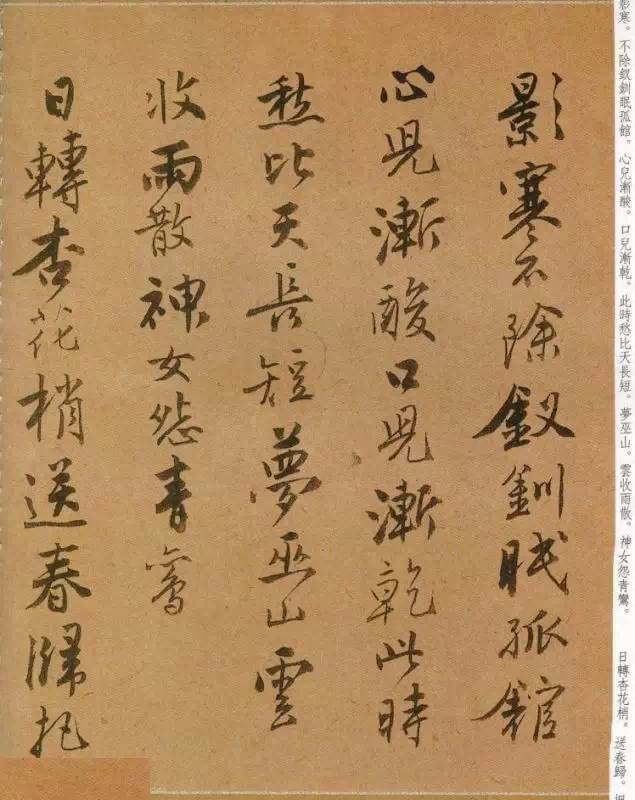 影寒。不除釵釧眠孤館。心兒漸酸。口兒漸乾。此時愁比天長短。夢巫山。雲收雨散。神女怨青鸞。 日轉杏花梢。送春歸。
影寒不除釵釧眠孤館
心兒漸酸口兒漸乾此時
愁比天長短夢巫山雲
收雨散神女怨青鸞
日轉杏花梢送春歸把